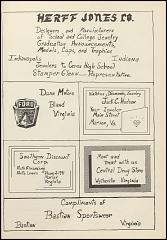 HERFF JONES CO.
Designers and Manufacturers
of School and College Jewelry
Graduation Announcements,
Medals, Cups, and Trophies
Indianapolis Indiana
Jewelers to Ceres High School
Stamper Glenn - Representative.
Dunn Motors
FORD
Bland
Virginia
Watches, Diamonds, Jewelry
Jack C. Hudson
Your Jeweler
Main Street
Marion, Va.
Southern Discount
Corp.
Marion
Virginia
Meet and
treat with us
Central Drug Store
Wytheville Virginia
Compliments of
Bastian Sportswear
Bastian Virginia